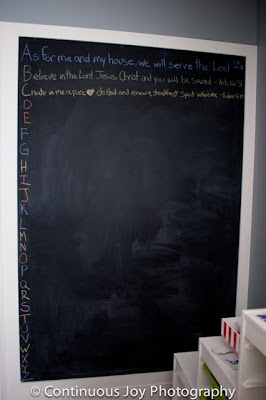 As for me and my house, we will serve the Lord
Believe in the Lord Jesus Christ and you will be saved - Acts 16:31
Create in me a pure ♥ oh God and renew a steadfast spirit within me. - Psalm 51:10
D
E
F
G
H
I
J
K
L
M
N
O
P
Q
R
S
T
U
V
W
X
Y
Z
© Continuous Joy Photography